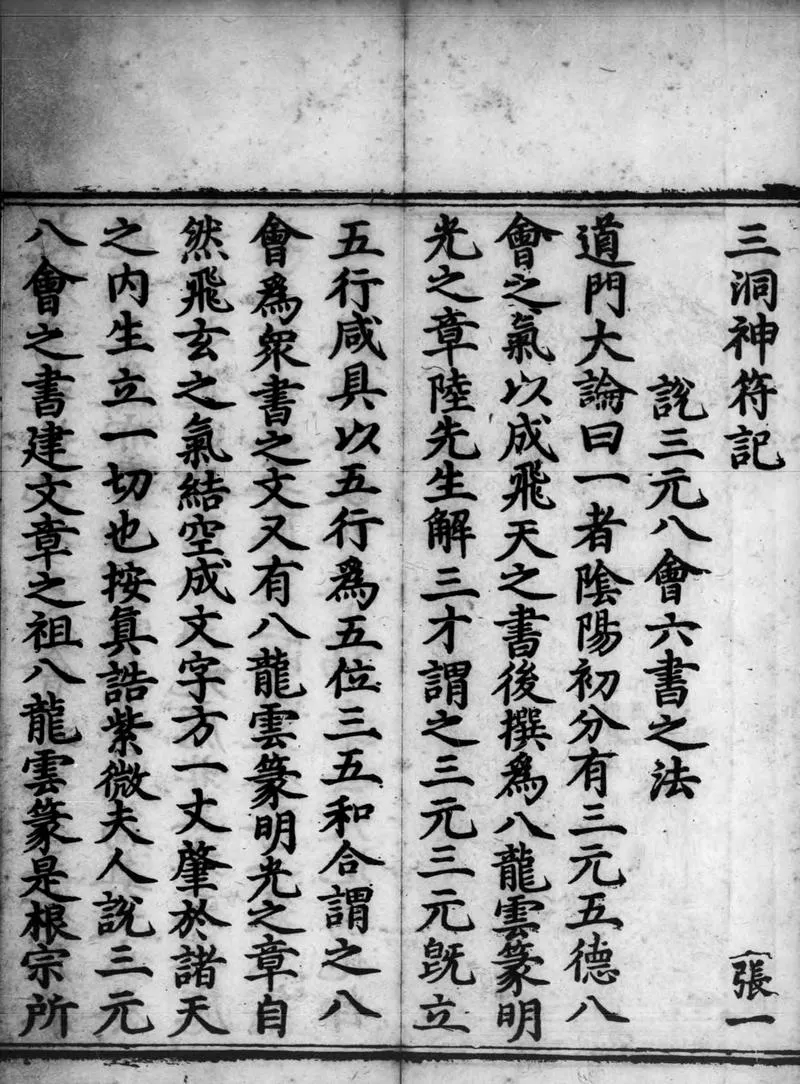 三洞神符記
張一
說三元八會六書之法
道門大論曰一者陰陽初分有三元五德八
會之氣以成飛天之書後撰爲八龍雲篆明
光之章陸先生解三才謂之三元三元旣立
五行咸具以五行爲五位三五和合謂之八
會爲衆書之文又有八龍雲篆明光之章自
然飛玄之氣結空成文字方一丈肇於諸天
之內生立一切也按眞誥紫微夫人說三元
八會之書建文章之祖八龍雲篆是根宗所